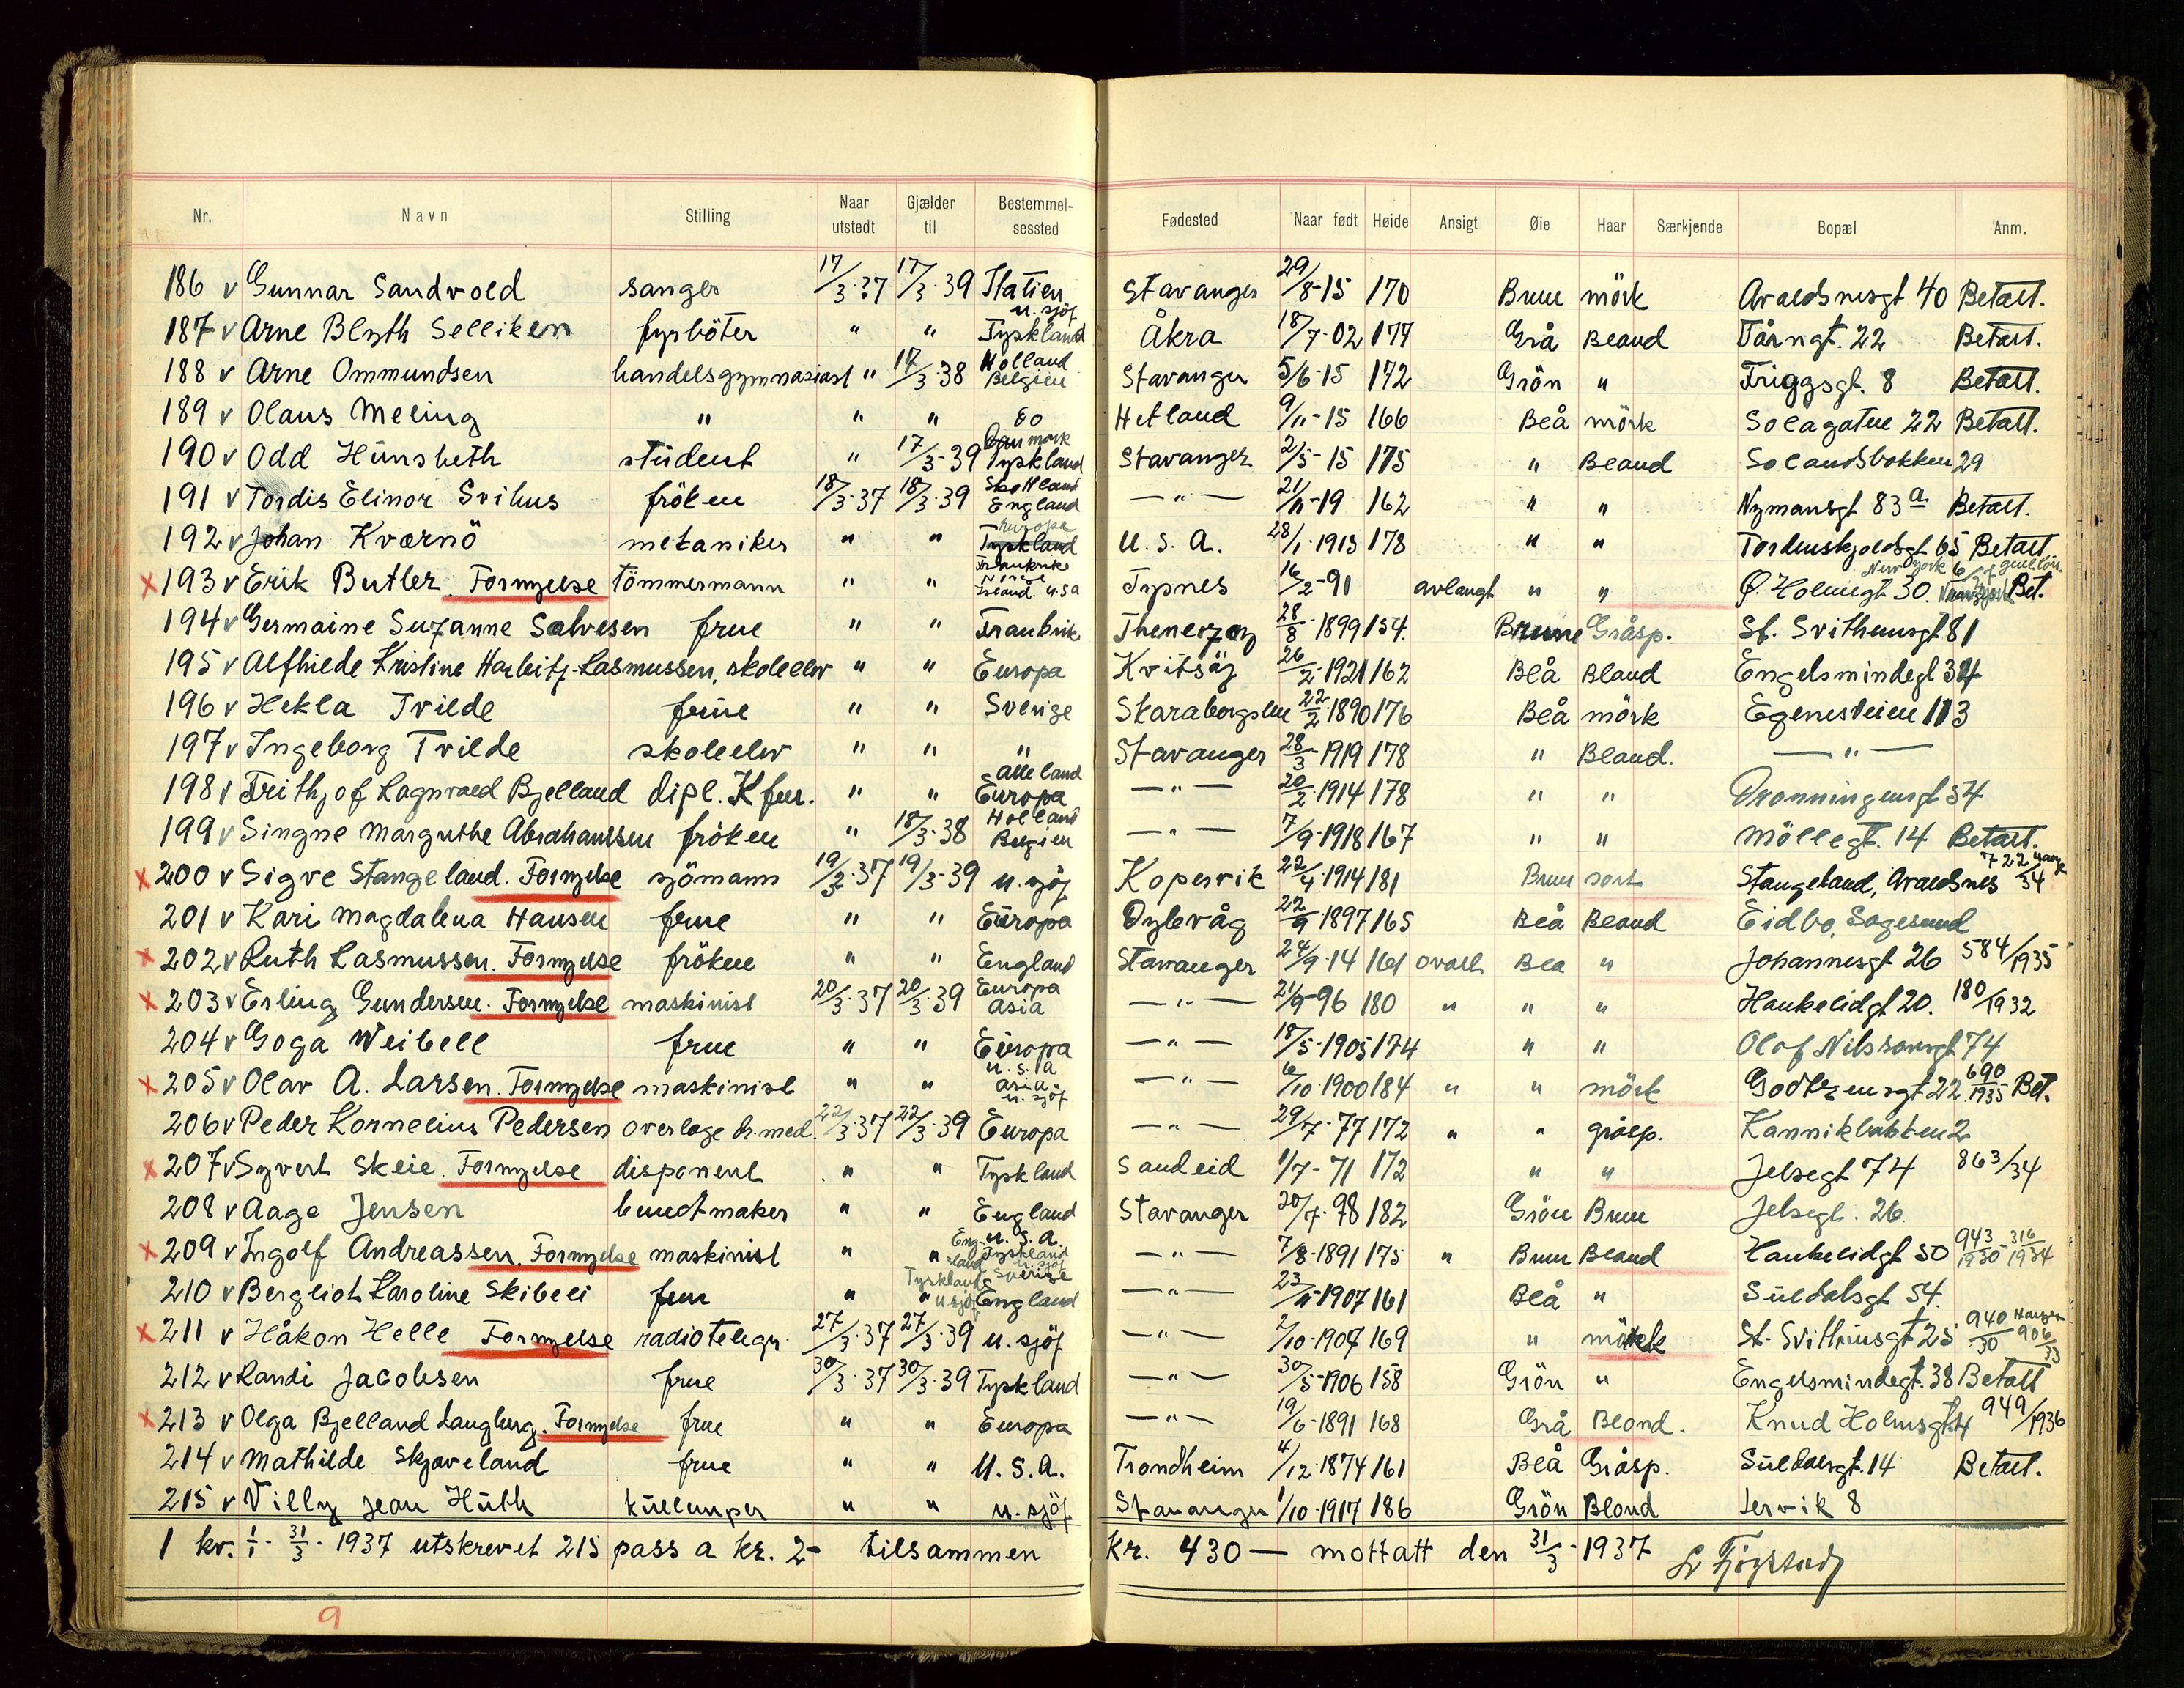 Nr. Navn Stilling Naar utstedt Gjælder til Bestemmel-sessted Fødested Naar født Høide Ansigt Øie Haar Særkjende Bopæl Anm.
186 v Gunnar Sandvold sanger 17/3-37 17/3-39 Italien Stavanger 29/8-15 170 Brun mörk Avaldsnesgt 40 Betalt.
187 v Arne Blyth Selliken fyrböter " " u. sjöf Tyskland Åkra 18/7-02 177 Grå Blond Tårngt. 22 Betalt.
188 v Arne Ommundsen handelsgymnasiast " 17/3-38 Holland Belgien Stavanger 5/6-15 172 Grön " Friggsgt. 8 Betalt.
189 v Olaus Meling " " " do Hetland 9/11-15 166 Blå mörk Solagaten 22 Betalt.
190 v Odd Hunsbeth student " 17/3-39 Danmark Tyskland Stavanger 2/5-15 175 " Blond Solandsbakken 29
191 v Tordis Elinor Svihus fröken 18/3-37 18/3-39 Skottland England —"— 21/11-19 162 " " Nymansgt 83a Betalt.
192 v Johan Kværnö mekaniker " " Europa Tyskland U.S.A. 28/1-1913 178 " " Tordenskjoldsgt 65 Betalt
x 193 v Erik Butler. Fornyelse tömmermann " " Frankrike Island. USA Typnes 16/2-91 avlangt " " Ø. Holmegt 30. New York Bet.
194 v Germaine Suzanne Salvesen frue " " Frankrik Thenezay 28/8-1899 154. Brune Gråsp. St. Svithunsgt 81
195 v Alfhilde Kristine Harbitz-Rasmussen, skoleelev " " Europa Kvitsöy 26/2-1921 162 Blå Blond Engelsmindegt 34
196 v Hekla Tvilde frue " " Sverige Skaraborgslen 22/2-1890 176 Blå mörk Egenesveien 113
197 v Ingeborg Tvilde skoleelev " " " Stavanger 28/3-1919 178 " Blond. —"—
198 v Frithjof Ragnvald Bjelland dipl. Kfm. " " Alle land Europa —"— 20/2-1914 178 " " Dronningensgt 54
199 v Singne Margrethe Abrahamsen fröken " 18/3-38 Holland Belgien —"— 7/9-1918 167 " " Möllegt. 14 Betalt.
x 200 v Sigve Stangeland. Fornyelse sjömann 19/3-37 19/3-39 u. sjöf Kopervik 22/4-1914 181 Brun sort Stangeland, Avaldsnes 722/34
201 v Kari Magdalena Hansen frue " " Europa Dybvåg 22/9-1897 165 Blå Blond Eidbo, Sagesund
x 202 v Ruth Rasmussen. Fornyelse fröken " " England Stavanger 24/9-14 161 ovalt Blå " Johannesgt 26 584/1935
x 203 v Erling Gundersen. Fornyelse maskinist 20/3-37 20/3-39 Europa Asia —"— 21/9-96 180 " " " Haukelidgt 20. 180/1932
204 v Goga Weibell frue " " Europa —"— 18/5-1905 174 " " Olof Nilssonsgt 74
x 205 v Olav A. Larsen. Fornyelse maskinist " " U.S.A Asia u. sjöf —"— 6/10-1900 184 " " mörk Godtzensgt 22 690/1935 Bet.
206 v Peder Kornelius Pedersen overlæge dr. med. 22/3-37 22/3-39 Europa —"— 29/7-77 172 " " gråsp. Kannikbakken 2
x 207 v Syvert Skeie. Fornyelse disponent " " Tyskland Sandeid 1/7-71 172 " " Jelsegt 74 863/34
208 v Aage Jensen buntmaker " " England Stavanger 20/7-98 182 Grön Brun Jelsegt. 26
x 209 v Ingolf Andreassen. Fornyelse maskinist " " England U.S.A. Tyskland u. sjöf —"— 7/8-1891 175 " Brun Blond Haukelidgt 50 943/1930-316/1934
210 v Bergliot Karoline Skibeli frue " " Tyskland Sverige u. sjöf England —"— 23/11-1907 161 Blå " Suldalsgt 54.
x 211 v Håkon Helle Fornyelse radiotelegr. 27/3-37 27/3-39 u. sjöf —"— 2/10-1907 169 " mörk St. Svithunsgt 25 940/30 906/33
212 v Randi Jacobsen frue 30/3-37 30/3-39 Tyskland —"— 30/5-1906 158 Grön " Engelsmindegt. 38 Betalt
x 213 v Olga Bjelland Langberg. Fornyelse frue " " Europa —"— 19/6-1891 168 Grå Blond. Knud Holmsgt 4 949/1936
214 v Mathilde Skjæveland frue " " U.S.A. Trondheim 4/12-1874 161 Blå Gråsp. Suldalsgt. 14 Betalt.
215 v Villy Jean Huth kullemper " " u. sjöf Stavanger 1/10-1917 186 Grön Blond Lervik 8
1 kv. 1/1-31/3-1937 utskrevet 215 pass a kr. 2- tilsammen kr. 430— mottatt den 31/3-1937
9